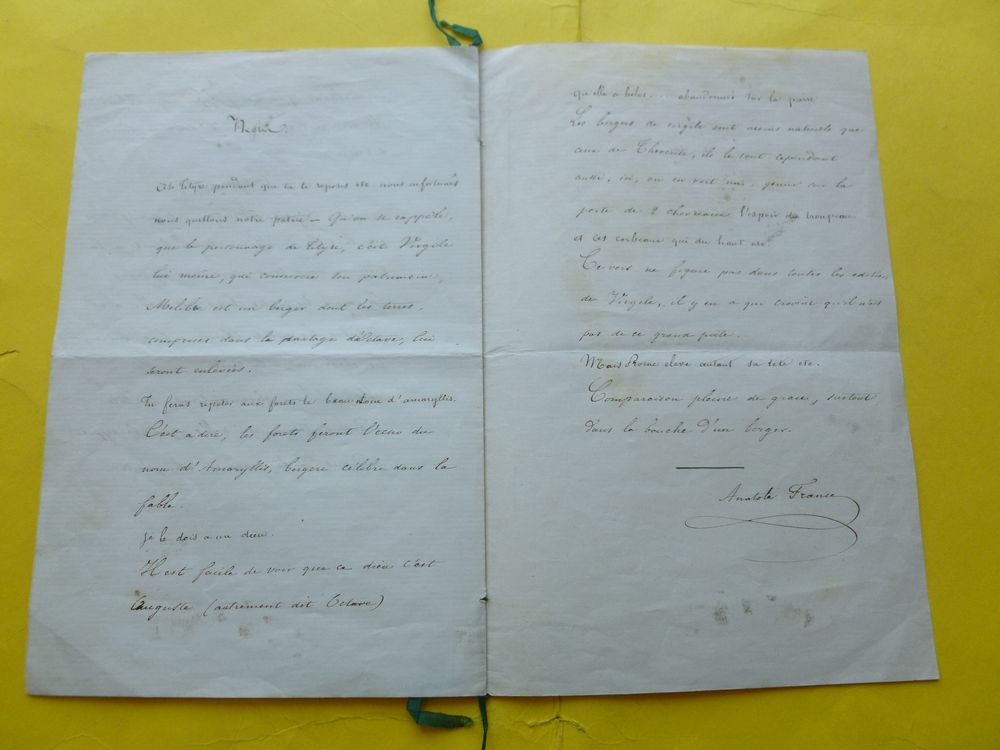 Ah Tityre pendant que tu te reposes etc. nous infortunés
nous quittons notre patrie – Qu'on se rappèle,
que le personnage de Tityre, c'est Virgile
lui même, qui conserve son patrimoine,
Melibé est un berger dont les terres,
comprises dans le partage d'Octave, lui
seront enlevées.
Tu feras repeter aux forets le beau nom d'amaryllis.
C'est a dire, les forets feront l'echo du
nom d'Amaryllis, bergere célèbre dans la
fable.
je le dois a un dieu.
Il est facile de voir que ce dieu c'est
Auguste (autrement dit Octave)
qu'elle a helas... abandonnés sur la pierre
Les bergers de virgile sont moins naturels que
ceux de Theocrite, ils le sont cependant
aussi, ici, on en voit un, gemir sur la
perte de 2 chevreaux l'espoir du troupeau
et ces corbeaux qui du haut etc
Ce vers ne figure pas dans toutes les editions
de Virgile, il y en a qui croient qu'il n'est
pas de ce grand poete.
Mais Rome eleve autant sa tete etc.
Comparaison pleine de grace, surtout
dans la bouche d'un berger.
Anatole France